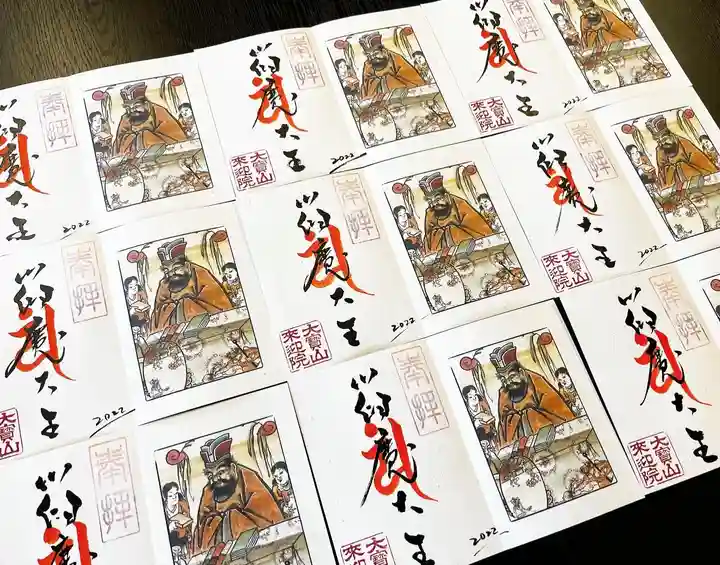 奉拝
魔大王
2022
奉拝
魔大王
大寶山
來迎院
2022
奉拝
魔大王
大寶山
來迎院
2022
奉拝
魔大王
大寶山
來迎院
2022
奉拝
魔大王
大寶山
來迎院
2022
奉拝
魔大王
大寶山
來迎院
2022
奉拝
魔
奉拝
魔大王
大寶山
來迎院
2022
奉拝
魔大王
大寶山
來迎院